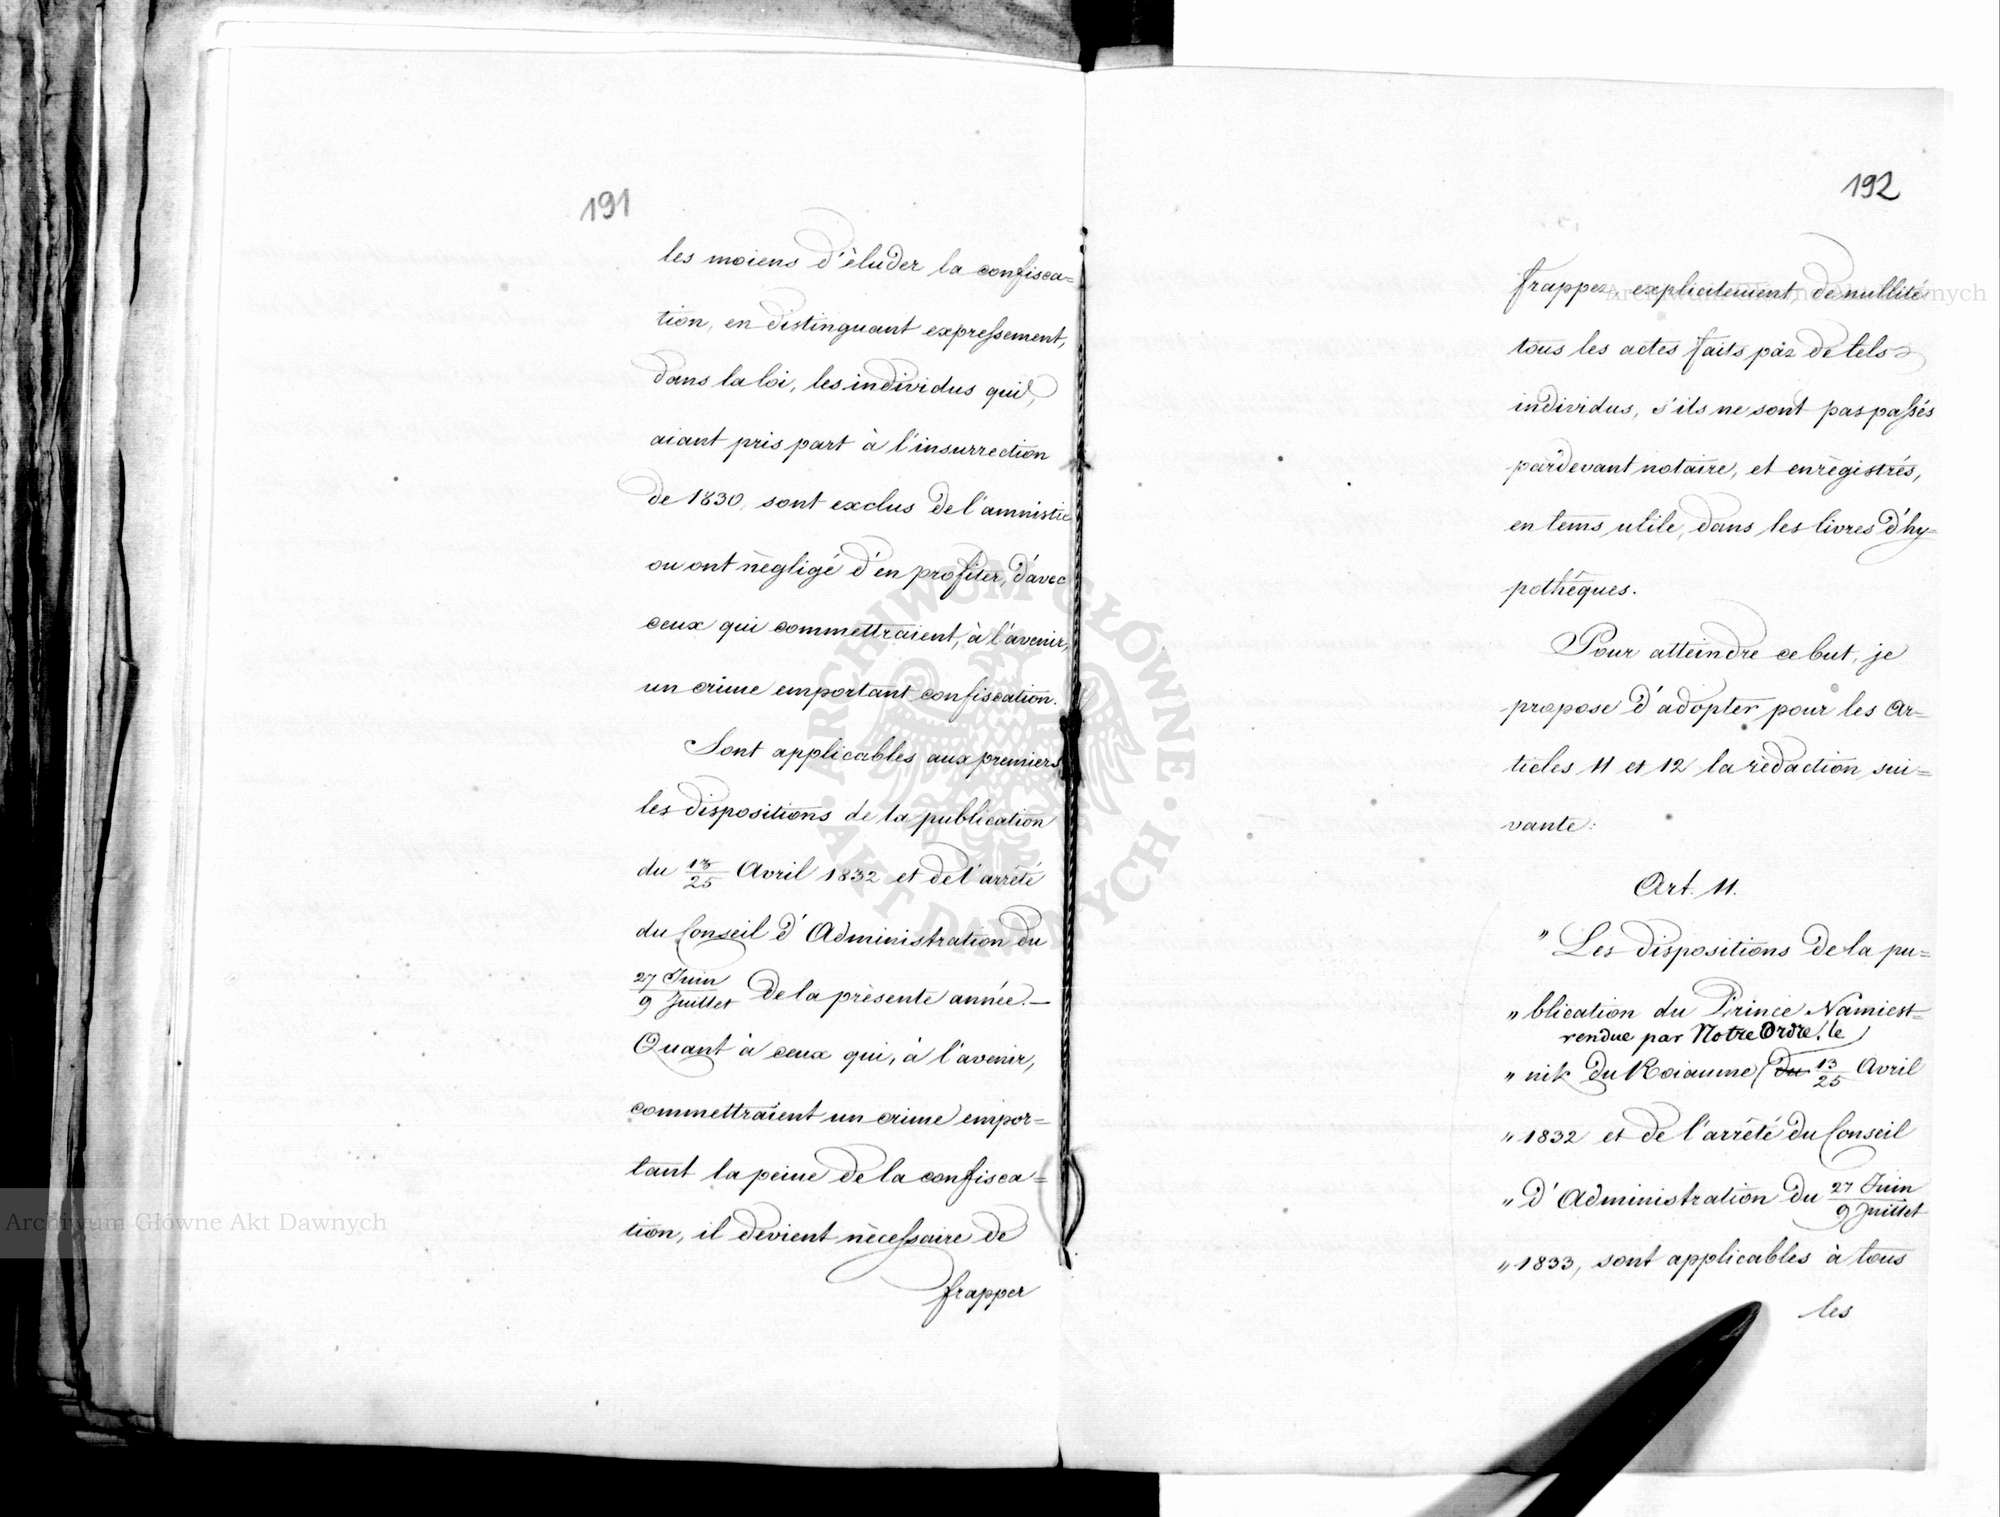 191
les moiens d'éluder la confisca=
tion, en distinguant expressement,
dans la loi, les individus qui,
aiant pris part à l'insurrection
de 1830, sont exclus de l'amnistie
ou ont négligé d'en profiter, d'avec
ceux qui commettraient, à l'avenir,
un crime emportant confiscation.
Sont applicables aux premiers
les dispositions de la publication
du 13/25 Avril 1832 et de l'arrêté
du Conseil d'Administration du
27 Juin/9 Juillet de la présente année. —
Quant à ceux qui, à l'avenir,
commettraient un crime empor=
tant la peine de la confisca=
tion, il devient nécessaire de
frapper
192
frapper explicitement de nullité
tous les actes faits par de tels
individus, s'ils ne sont pas passés
pardevant notaire, et enrégistrés,
en tems utile, dans les livres d'hy=
pothêques.
Pour atteindre ce but, je
propose d'adopter pour les Ar=
ticles 11 et 12 la rédaction sui=
vante:
Art. 11.
" Les dispositions de la pu=
" blication du Prince Namiest=
rendue par Notre Ordre, le
" nik du Roiaume du 13/25 Avril
" 1832 et de l'arrêté du Conseil
" d'Administration du 27 Juin/9 Juillet
" 1833, sont applicables à tous
les
Archiwum Główne Akt Dawnych
Archiwum Główne Akt Dawnych
ARCHIWUM GŁÓWNE · AKT DAWNYCH ·